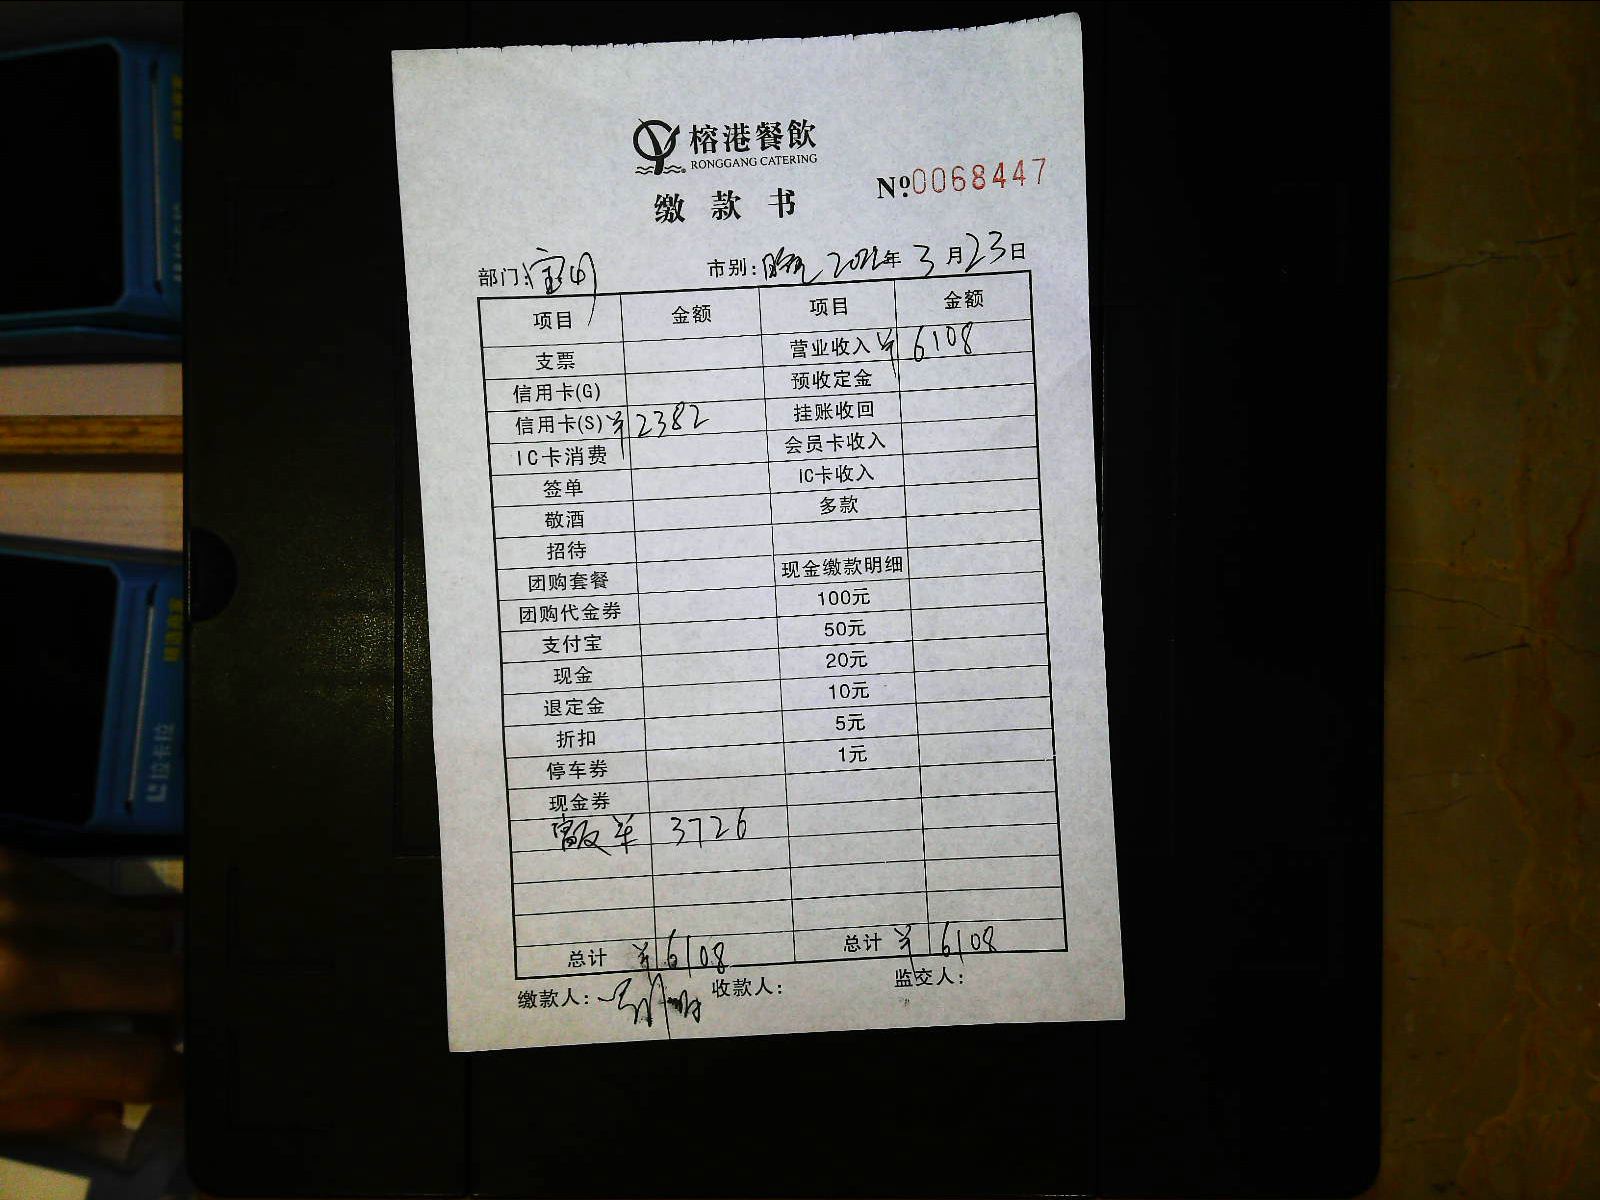 榕港餐飲
RONGGANG CATERING
缴款书
Nº.0068447
部门: 市别: 年 3 月 23 日
项目 金额 项目 金额
支票 营业收入 ¥ 6108
信用卡(G) 预收定金
信用卡(S) ¥ 2382 挂账收回
IC卡消费 会员卡收入
签单 IC卡收入
敬酒 多款
招待
团购套餐 现金缴款明细
团购代金券 100元
支付宝 50元
现金 20元
退定金 10元
折扣 5元
停车券 1元
现金券
3726
总计 ¥ 6108 总计 ¥ 6108
缴款人: 收款人: 监交人:
拉卡拉